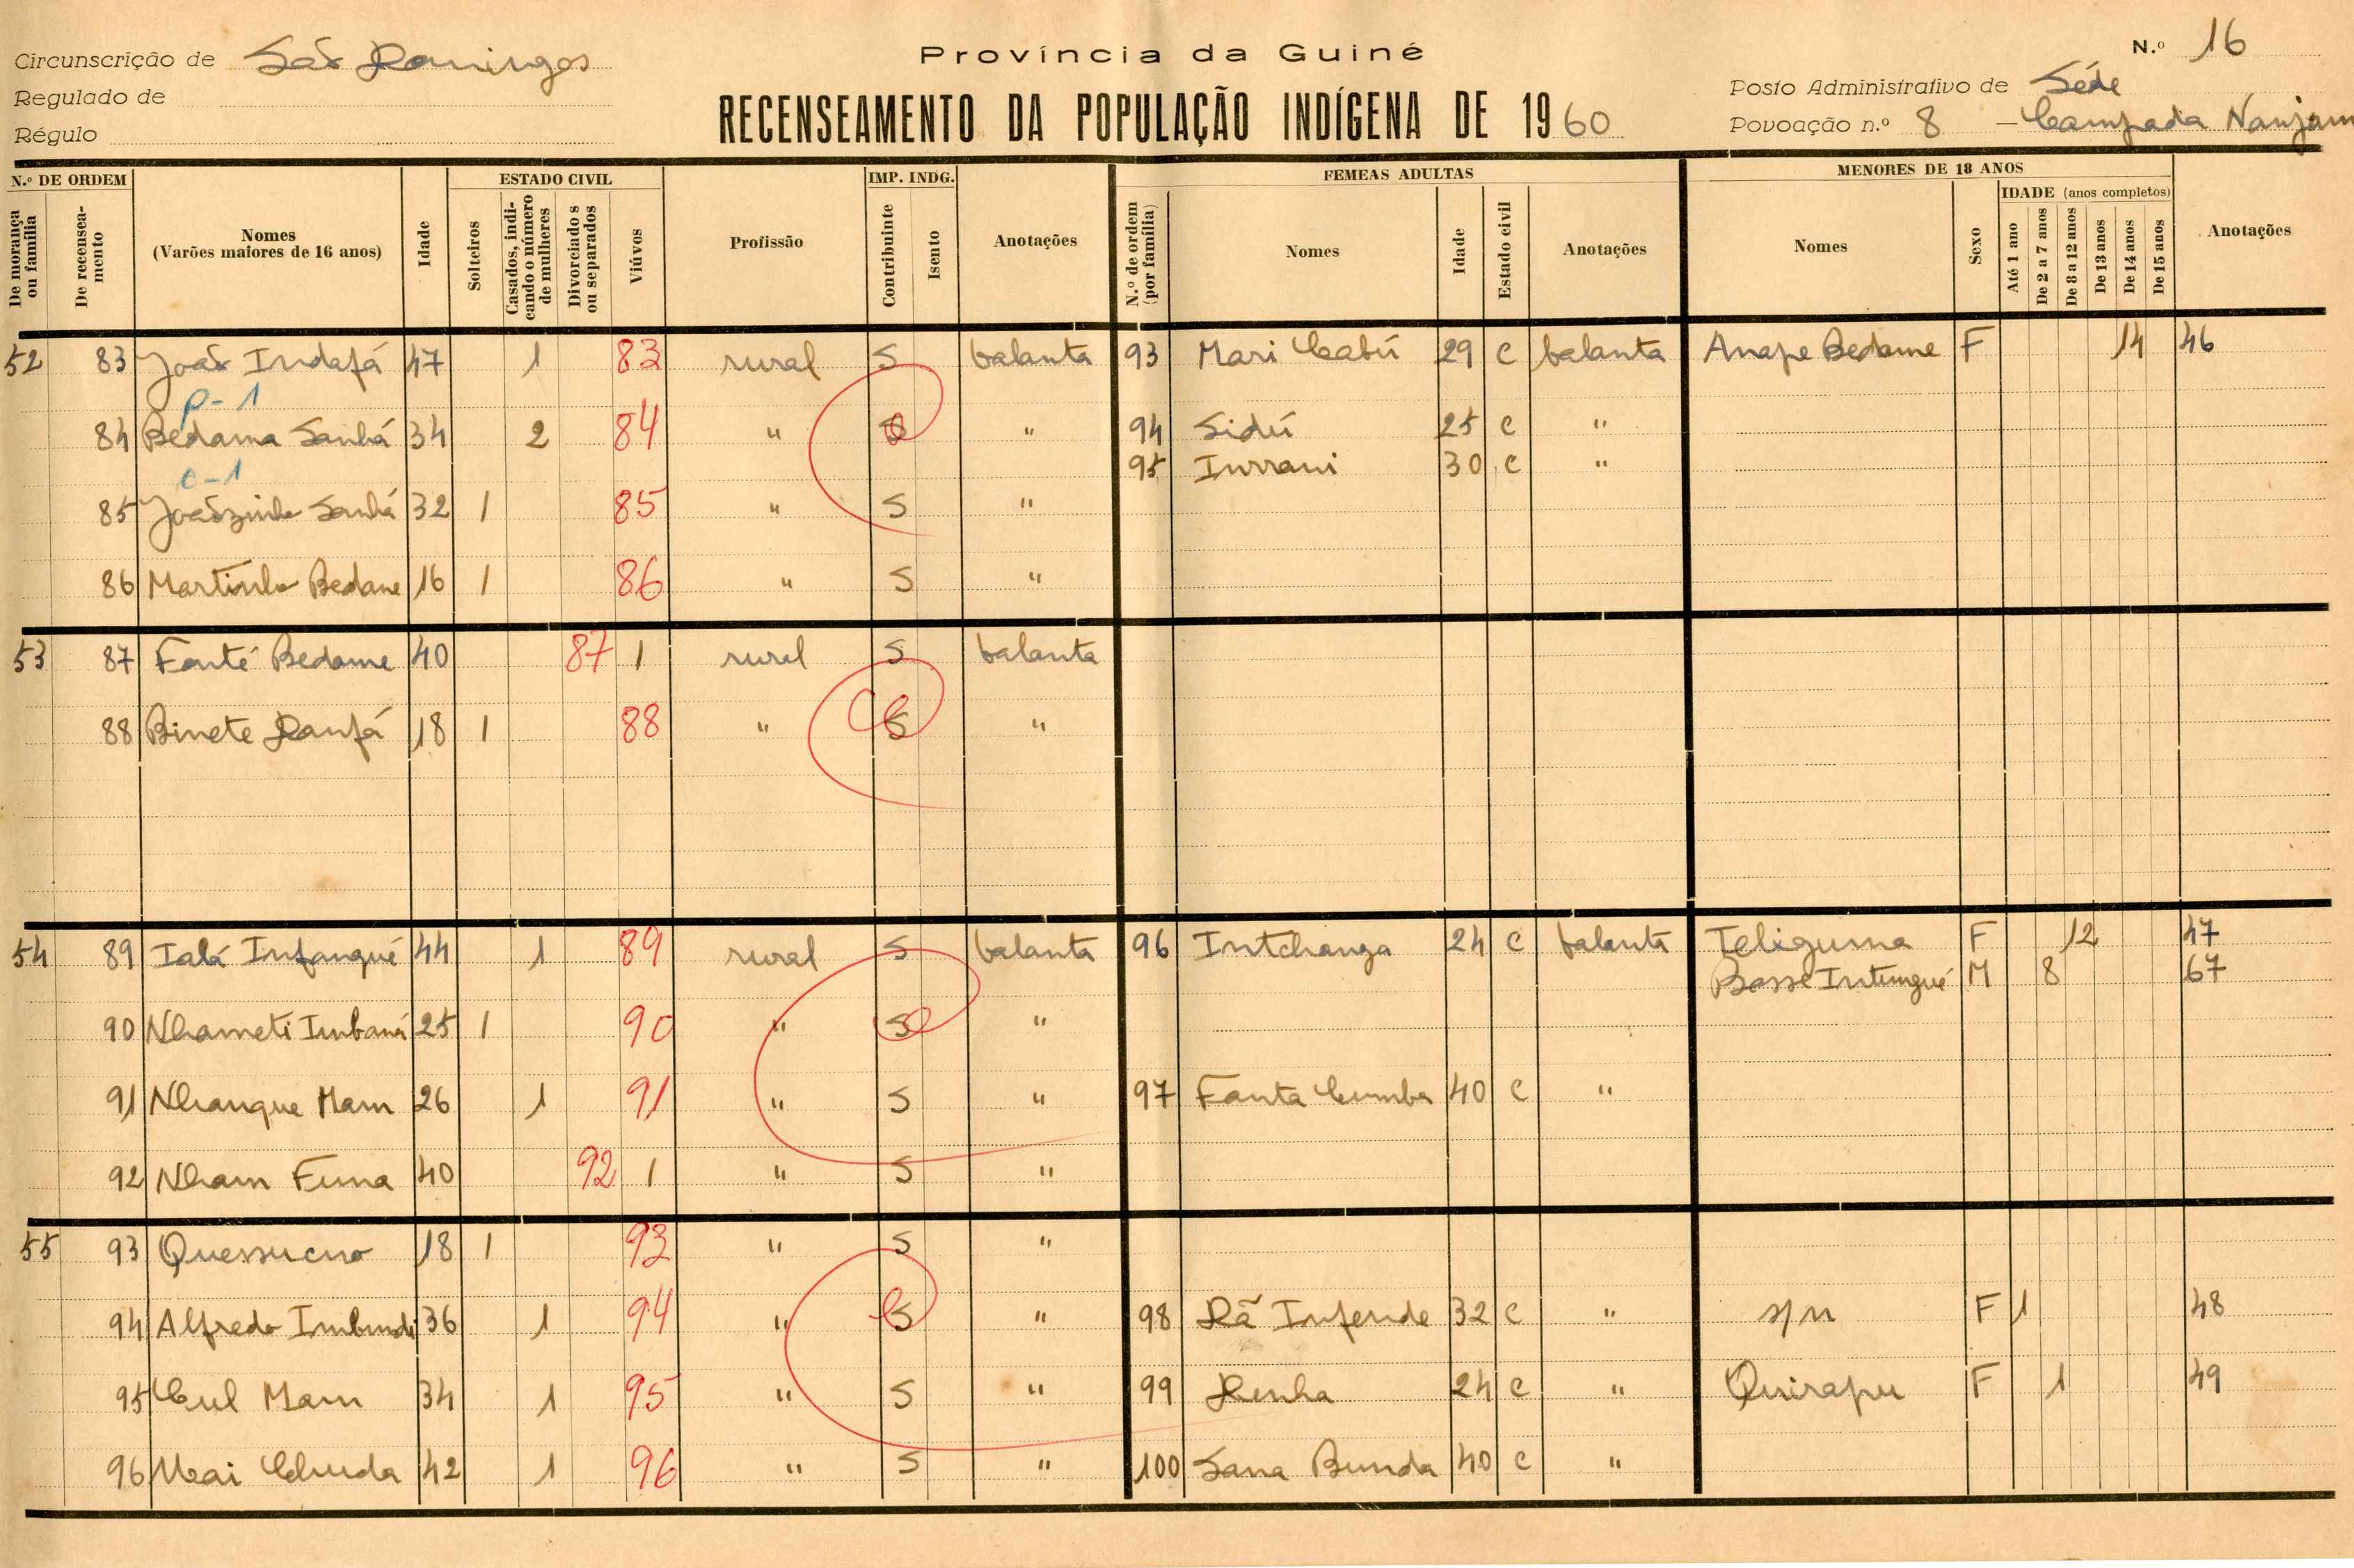 Província da Guiné
N.º 16
Circunscrição de São Domingos
Regulado de
Régulo
RECENSEAMENTO DA POPULAÇÃO INDÍGENA DE 1960
Posto Administrativo de Séde
Povoação n.º 8 - Campada Nanjam
N.º DE ORDEM ESTADO CIVIL IMP. INDG. FEMEAS ADULTAS MENORES DE 18 ANOS
IDADE (anos completos)
De morança ou família De recenseamento Nomes (Varões maiores de 16 anos) Idade Solteiros Casados, indicando o número de mulheres Divorciados ou separados Viúvos Profissão Contribuinte Isento Anotações N.º de ordem (por família) Nomes Idade Estado civil Anotações Nomes Sexo Até 1 ano De 2 a 7 anos De 8 a 12 anos De 13 anos De 14 anos De 15 anos Anotações
52 83 João Indafá 47 1 83 rural S balanta 93 Mari Cabú 29 C balanta Anape Bedame F 14 46
P-1
84 Bedama Sanhá 34 2 84 " S " 94 Sidú 25 C "
95 Inrrani 30 C "
C-1
85 Joãozinho Sanhá 32 1 85 " S "
86 Martinho Bedane 16 1 86 " S "
53 87 Fonté Bedame 40 87 1 rural S balanta
88 Binete Danfá 18 1 88 " S "
54 89 Ialá Infangué 44 1 89 rural S balanta 96 Intchanga 24 C balanta Teliguma F 12 47
Bosse Intungué M 8 67
90 Nhameti Imbaná 25 1 90 " S "
91 Nhangue Mam 26 1 91 " S " 97 Fanta Cumba 40 C "
92 Nham Funa 40 92 1 " S "
55 93 Quessucuo 18 1 93 " S "
94 Alfredo Imbunde 36 1 94 " S " 98 Dã Infende 32 C " s/n F 1 48
95 Cul Mam 34 1 95 " S " 99 Denha 24 C " Quirapu F 1 49
96 Mai Chuda 42 1 96 " S " 100 Sana Bunda 40 C "